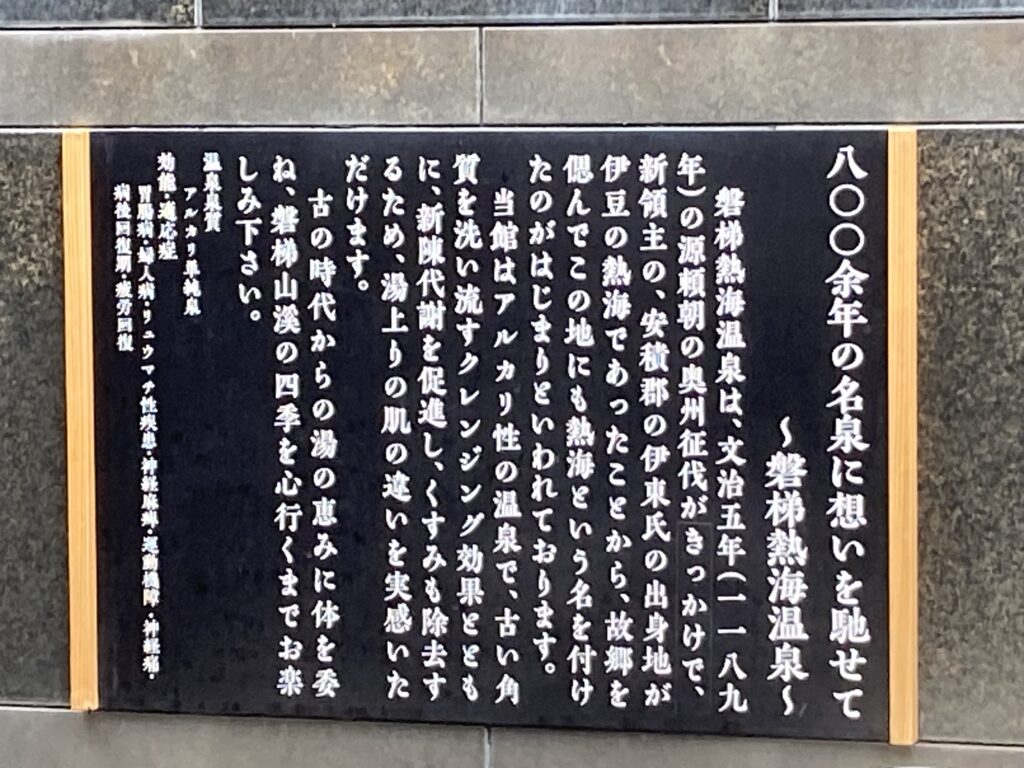 八〇〇余年の名泉に想いを馳せて
～磐梯熱海温泉～
磐梯熱海温泉は、文治五年(一一八九
年)の源頼朝の奥州征伐がきっかけで、
新領主の、安積郡の伊東氏の出身地が
伊豆の熱海であったことから、故郷を
偲んでこの地にも熱海という名を付け
たのがはじまりといわれております。
当館はアルカリ性の温泉で、古い角
質を洗い流すクレンジング効果ととも
に、新陳代謝を促進し、くすみも除去す
るため、湯上りの肌の違いを実感いた
だけます。
古の時代からの湯の恵みに体を委
ね、磐梯山渓の四季を心行くまでお楽
しみ下さい。
温泉泉質
アルカリ単純泉
効能・適応症
胃腸病・婦人病・リュウマチ性疾患・神経麻痺・運動機障・神経痛・
病後回復期・疲労回復